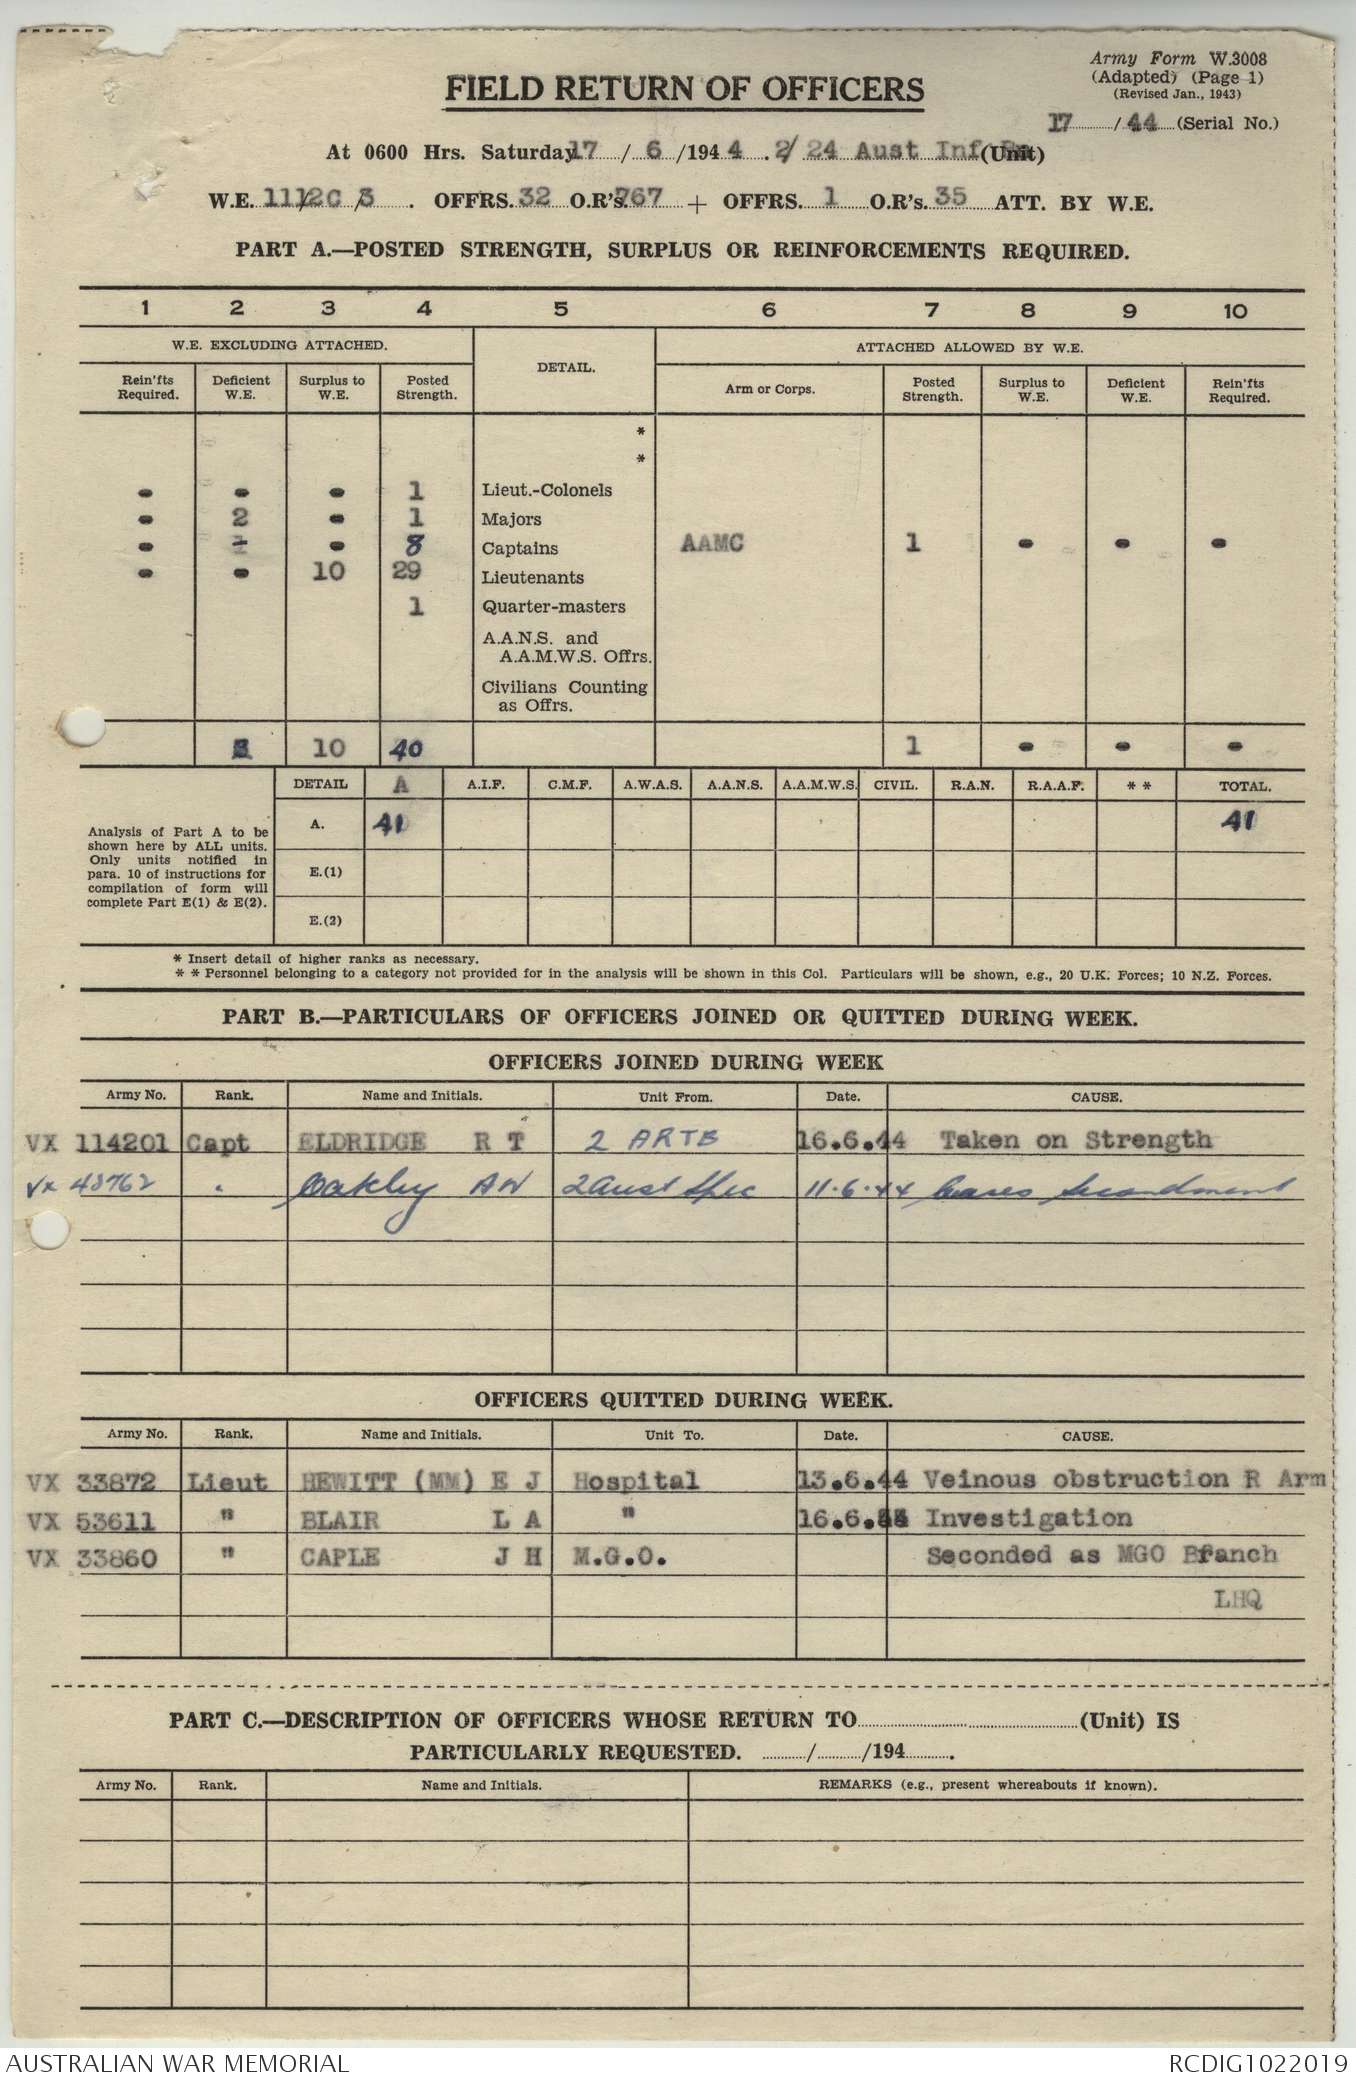 Army Form W.3008
(Adapted) (Page 1)
(Revised Jan., 1943)
FIELD RETURN OF OFFICERS
17 / 44 (Serial No.)
At 0600 Hrs. Saturday 17 / 6 /1944 . 2/ 24 Aust Inf Bn (Unit)
W.E. 11/2C /3 . OFFRS. 32 O.R's. 767 + OFFRS. 1 O.R's. 35 ATT. BY W.E.
PART A.—POSTED STRENGTH, SURPLUS OR REINFORCEMENTS REQUIRED.
1 2 3 4 5 6 7 8 9 10
W.E. EXCLUDING ATTACHED. DETAIL. ATTACHED ALLOWED BY W.E.
Rein'fts Required. Deficient W.E. Surplus to W.E. Posted Strength. Arm or Corps. Posted Strength. Surplus to W.E. Deficient W.E. Rein'fts Required.
*
*
- - - 1 Lieut.-Colonels
- 2 - 1 Majors
- - 8 Captains AAMC 1 - - -
- - 10 29 Lieutenants
1 Quarter-masters
A.A.N.S. and
A.A.M.W.S. Offrs.
Civilians Counting
as Offrs.
10 40 1 - - -
DETAIL A A.I.F. C.M.F. A.W.A.S. A.A.N.S. A.A.M.W.S. CIVIL. R.A.N. R.A.A.F. * * TOTAL.
Analysis of Part A to be
shown here by ALL units.
Only units notified in
para. 10 of instructions for
compilation of form will
complete Part E(1) & E(2).
A. 41 41
E.(1)
E.(2)
* Insert detail of higher ranks as necessary.
* * Personnel belonging to a category not provided for in the analysis will be shown in this Col. Particulars will be shown, e.g., 20 U.K. Forces; 10 N.Z. Forces.
PART B.—PARTICULARS OF OFFICERS JOINED OR QUITTED DURING WEEK.
OFFICERS JOINED DURING WEEK
Army No. Rank. Name and Initials. Unit From. Date. CAUSE.
VX 114201 Capt ELDRIDGE R T 2 ARTB 16.6.44 Taken on Strength
VX 48762 " Oakley AW 2 Aust Spec 11.6.44 Ceases Secondment
OFFICERS QUITTED DURING WEEK.
Army No. Rank. Name and Initials. Unit To. Date. CAUSE.
VX 33872 Lieut HEWITT (MM) E J Hospital 13.6.44 Veinous obstruction R Arm
VX 53611 " BLAIR L A " 16.6.44 Investigation
VX 33860 " CAPLE J H M.G.O. Seconded as MGO Branch
LHQ
PART C.—DESCRIPTION OF OFFICERS WHOSE RETURN TO (Unit) IS
PARTICULARLY REQUESTED. / /194 .
Army No. Rank. Name and Initials. REMARKS (e.g., present whereabouts if known).
AUSTRALIAN WAR MEMORIAL
RCDIG1022019